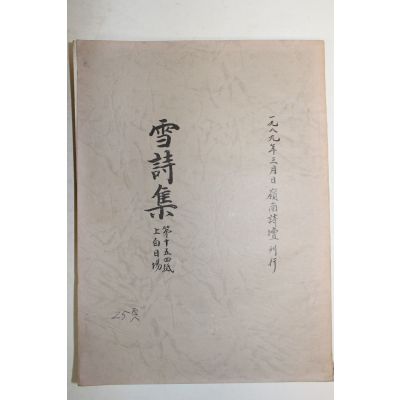 一九八九年三月 日 嶺南詩壇 刊行
雪詩集
第十五
上白日場
25